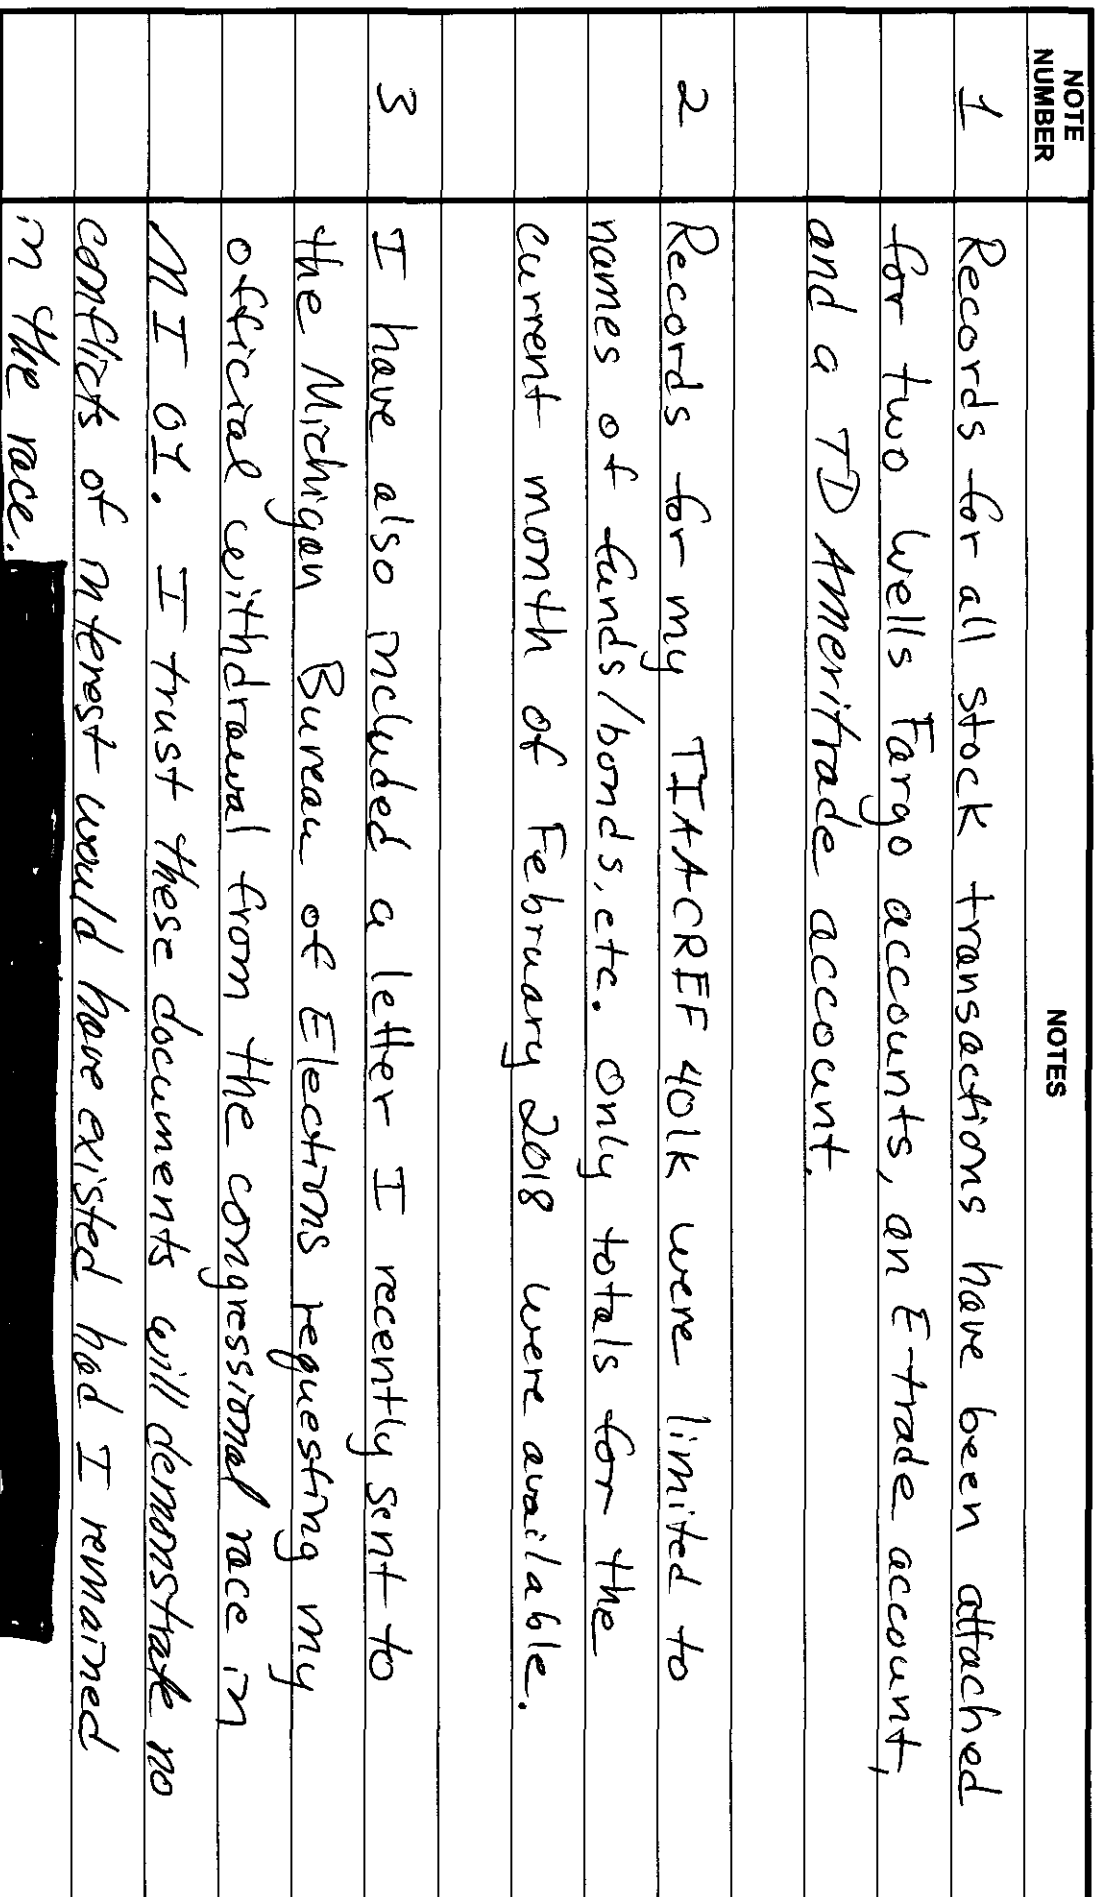 NOTE NUMBER NOTES
1 Records for all stock transactions have been attached
for two Wells Fargo accounts, an Etrade account,
and a TD Ameritrade account.
2 Records for my TIAACREF 401k were limited to
names of funds/bonds, etc. Only totals for the
current month of February 2018 were available.
3 I have also included a letter I recently sent to
the Michigan Bureau of Elections requesting my
official withdrawal from the congressional race in
MI 01. I trust these documents will demonstrate no
conflicts of interest would have existed had I remained
in the race.